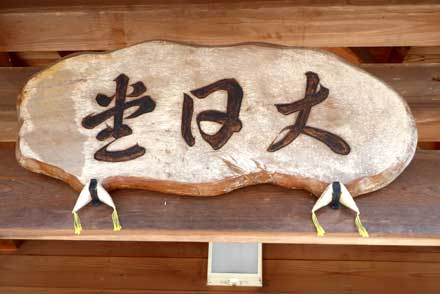 大日堂